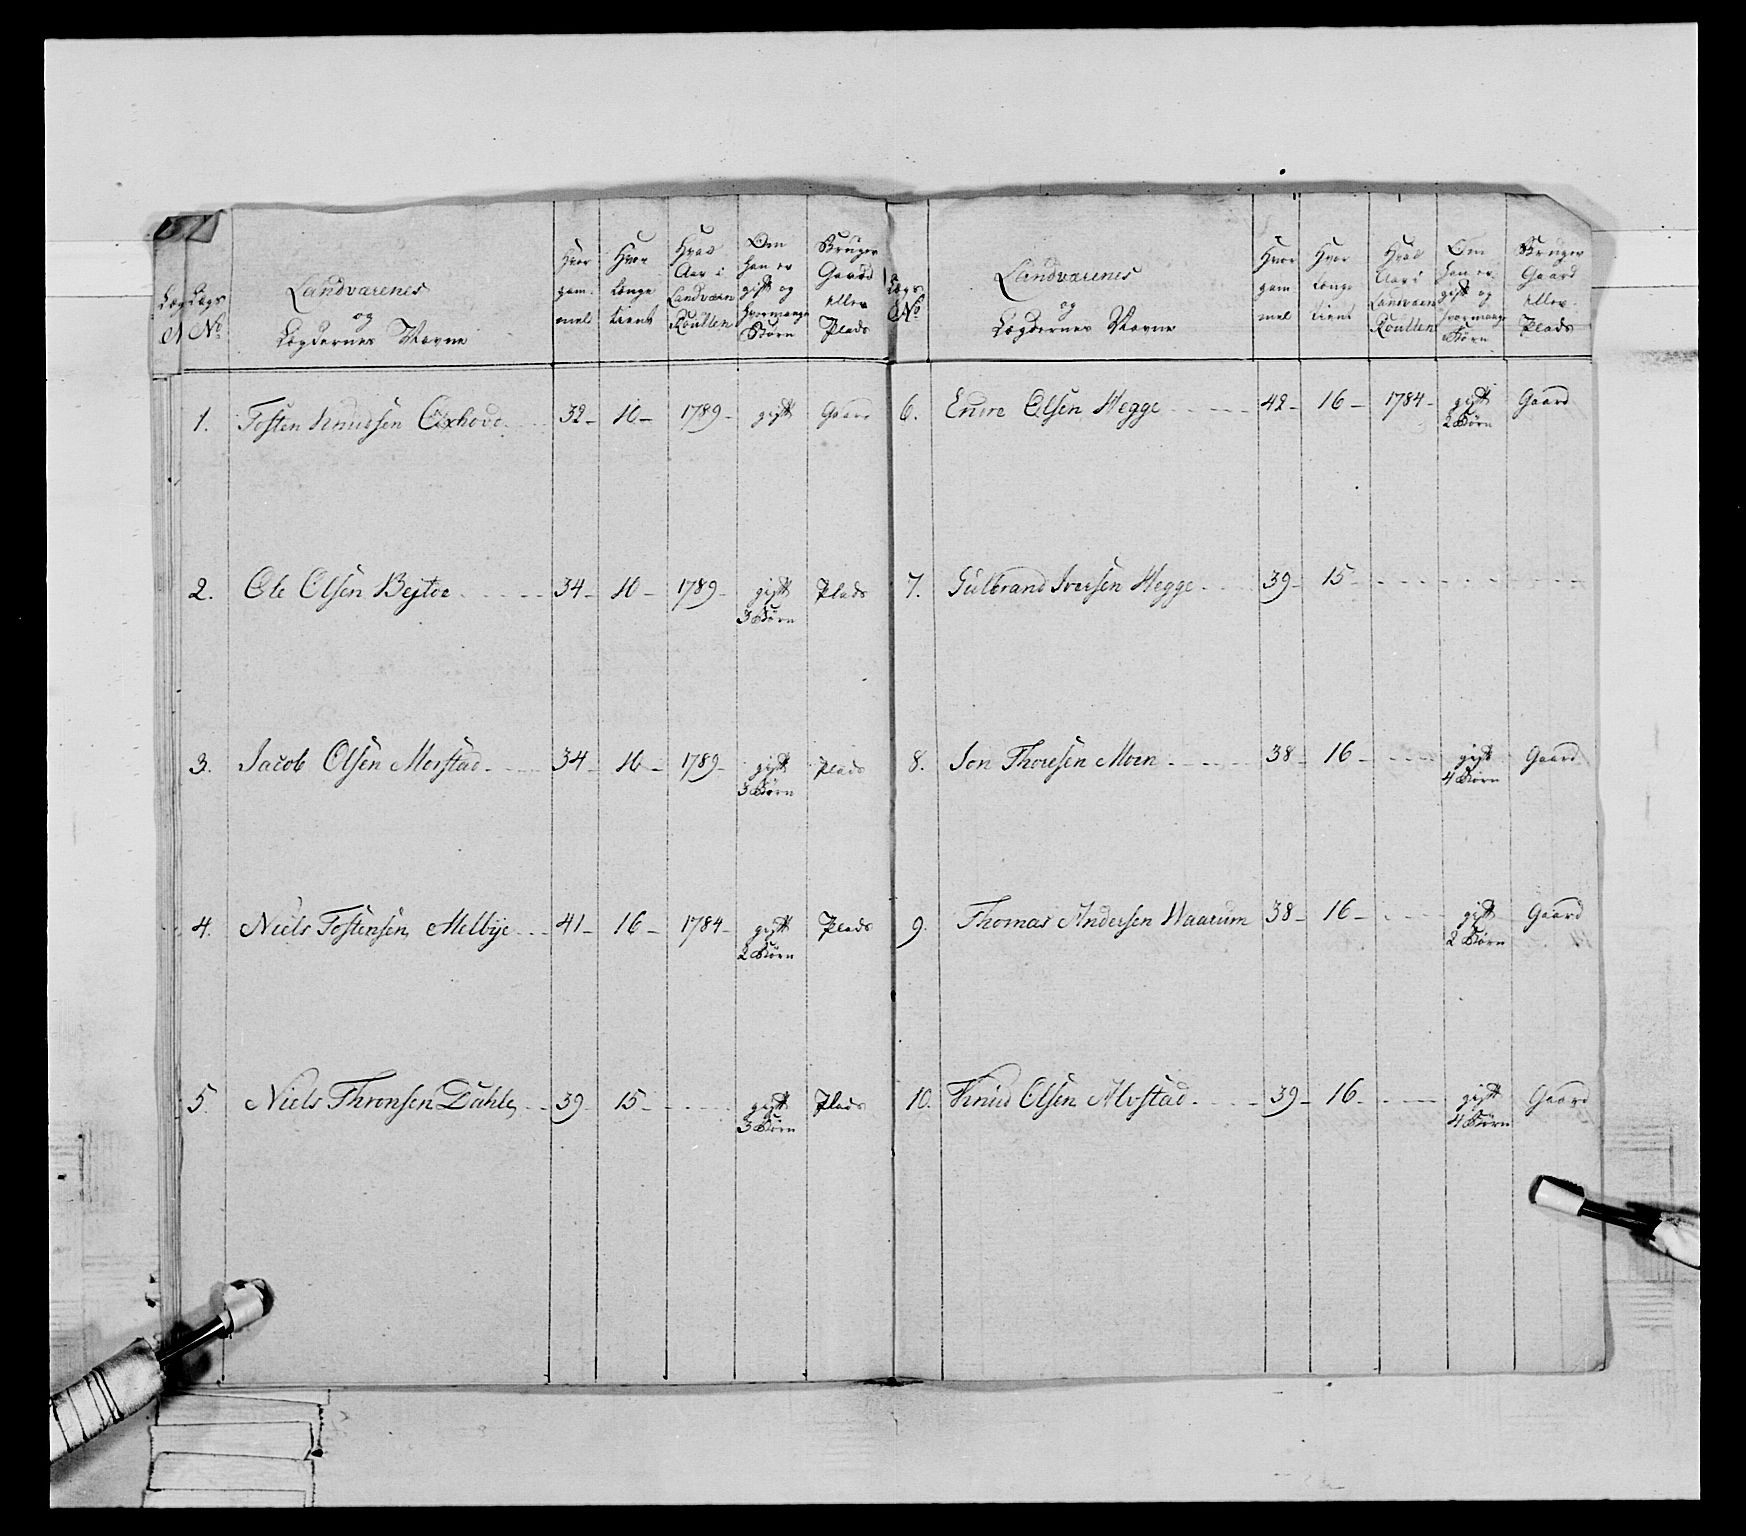 Lægs No
Landværenes og Lægdernes Navne
Hvor gammel
Hvor længe tient
Hvad Aar i Landværn Roullen
Om han er gift og hvormange Børn
Bruger Gaard eller Plads
1. Tosten Knudsen Oxhovd 32 - 10 - 1789 - gift Gaard
2. Ole Olsen Bejtoe 34 - 10 - 1789 - gift 3 Børn Plads
3. Jacob Olsen Morstad 34 - 10 - 1789 - gift 3 Børn Plads
4. Niels Tostensen Melbye 41 - 16 - 1784 - gift 2 Børn Plads
5. Niels Thronsen Dahle 39 - 15 - gift 3 Børn Plads
Lægs No
Landværenes og Lægdernes Navne
Hvor gammel
Hvor længe tient
Hvad Aar i Landværn Roullen
Om han er gift og hvormange Børn
Bruger Gaard eller Plads
6. Endre Olsen Hegge 42 - 16 - 1784 - gift 2 Børn Gaard
7. Gulbrand Iversen Hegge 39 - 15 -
8. Jon Thoresen Moen 38 - 16 - gift 4 Børn Gaard
9. Thomas Andersen Waarum 38 - 16 - gift 2 Børn Gaard
10. Knud Olsen Alvstad 39 - 16 - gift 4 Børn Gaard